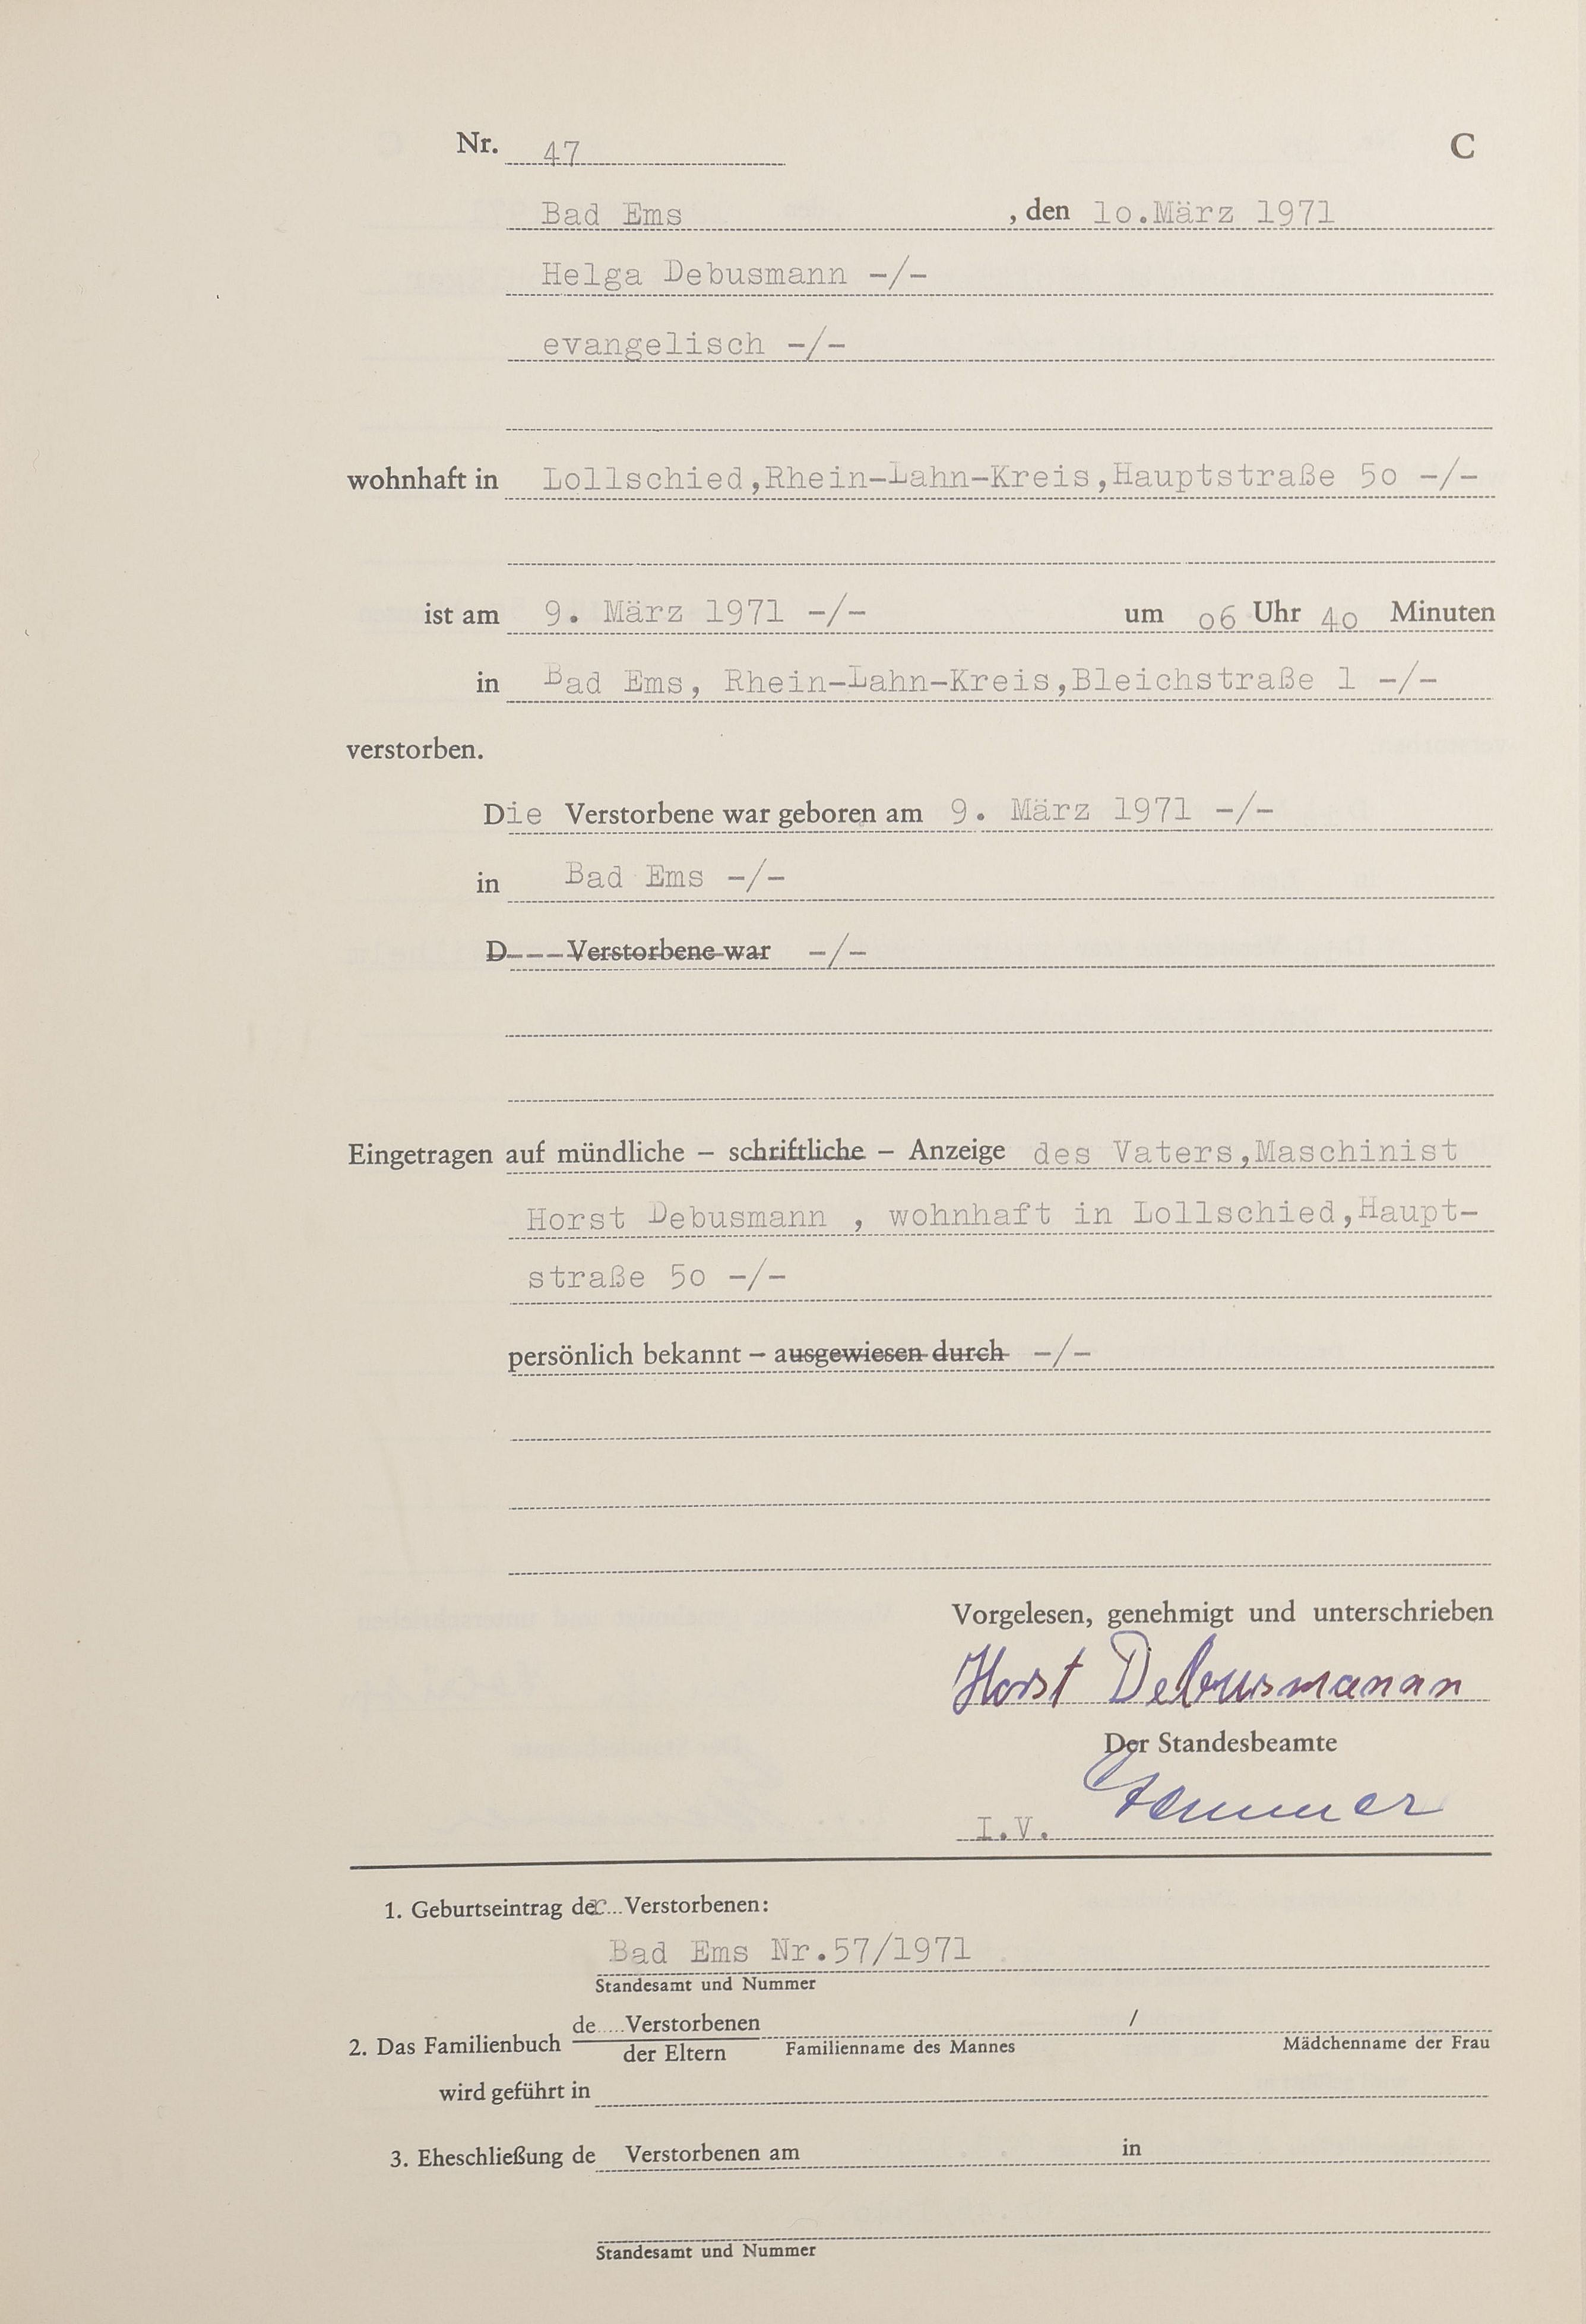 Nr. 47 C
Bad Ems , den 1o.März 1971
Helga Debusmann -/-
evangelisch -/-
wohnhaft in Lollschied,Rhein-Lahn-Kreis,Hauptstraße 5o -/-
ist am 9. März 1971 -/- um o6 Uhr 4o Minuten
in Bad Ems, Rhein-Lahn-Kreis,Bleichstraße 1 -/-
verstorben.
Die Verstorbene war geboren am 9. März 1971 -/-
in Bad Ems -/-
D---Verstorbene war -/-
Eingetragen auf mündliche – schriftliche – Anzeige des Vaters,Maschinist
Horst Debusmann , wohnhaft in Lollschied,Haupt-
straße 5o -/-
persönlich bekannt – ausgewiesen durch -/-
Vorgelesen, genehmigt und unterschrieben
Horst Debusmann
Der Standesbeamte
I.V.
1. Geburtseintrag der Verstorbenen:
Bad Ems Nr.57/1971
Standesamt und Nummer
2. Das Familienbuch de Verstorbenen /
der Eltern Familienname des Mannes Mädchenname der Frau
wird geführt in
3. Eheschließung de Verstorbenen am in
Standesamt und Nummer